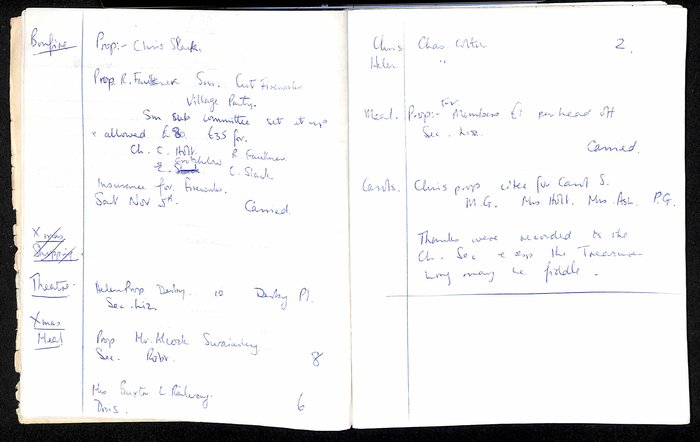 Bonfire Prop:- Chris Slack
Prop R. Faulkner Sm. Cut Fireworks
Village Party.
Sm sub committee set it up
+ allowed £80. £35 for.
Ch. C. Holt. R. Faulkner
E. Slack C. Slack.
Insurance for Fireworks.
Sat Nov 5th. Carried.
Xmas
Shopping
Theatre. Helen Prop Derby. 10 Derby Pl.
Sec. Liz.
Xmas
Meal Prop Mr. Alcock Swainsley
Sec. Robt. 8
Mrs Buxton L Railway.
Doris. 6
Chris Chas. 2.
Helen "
Meal. Prop:- for Members £1 per head off
Sec. Liz.
Carried.
Carols. Chris prop for Carol S.
M.G. Mrs Holt. Mrs. Ash. P.G.
Thanks were recorded to the
Ch. Sec + esp the Treasurer
long may he fiddle.